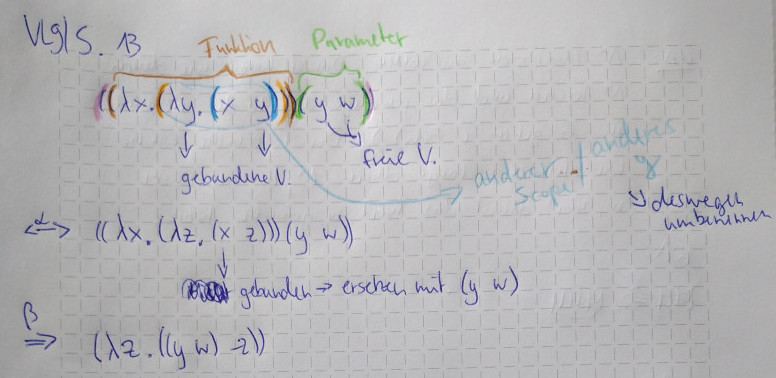 Vlgl S. 13
Funktion Parameter
((λx.(λy.(x y)))(y w))
gebundene V. freie V.
anderer Scope! anderes y
↳ deswegen umbenennen
<=α=> ((λx.(λz.(x z)))(y w))
gebunden → ersetzen mit (y w)
β => (λz.((y w) z))